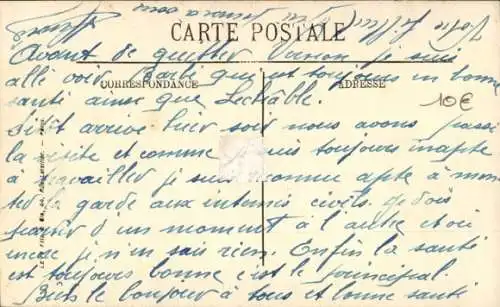 CARTE POSTALE
Avant de quitter Vierzon je suis
allé voir Barbe qui est toujours en bonne
CORRESPONDANCE
ADRESSE
10€
santé ainsi que
arrivé hier soir nous avons passé
la visite et comme je suis toujours inapte
à travailler je suis reconnu apte à mon
ter la garde aux internés civils je dois
partir d'un moment à l'autre et où
encore je n'en sais rien. Enfin la santé
est toujours bonne c'est le principal.
le bonjour à tous et bonne santé
Votre
à vous